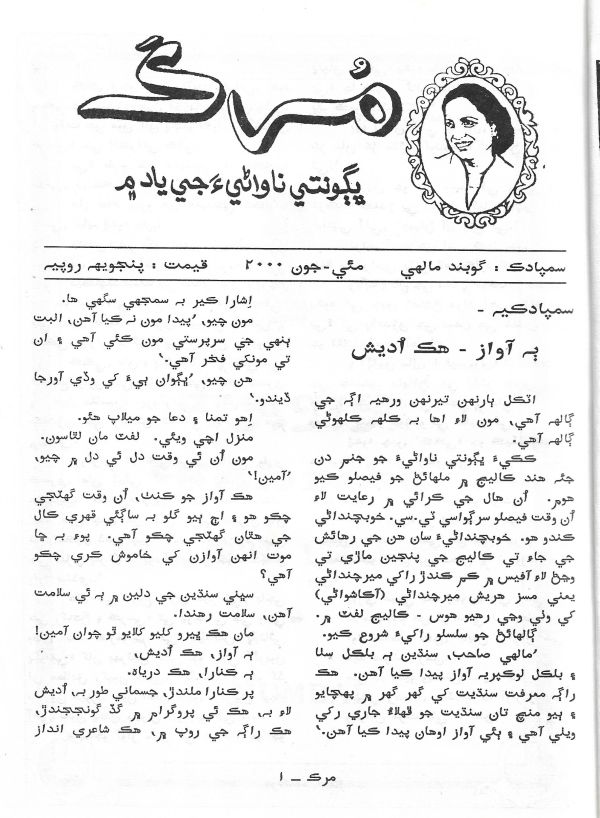 مُرڪ
ڀڳونتي ناواڻيءَ جي ياد ۾
سمپادڪ : گوبند مالهي مئي-جون ۲۰۰۰ قيمت : پنجويهه روپيه
سمپادڪيه -
ٻه آواز - هڪ اُديش
اٽڪل ٻارنهن تيرنهن ورهيه اڳ جي
ڳالهه آهي، مون لاءِ اها ٻه ڪلهه ڪلهوڻي
ڳالهه آهي.
ڪڪيءَ ڀڳونتي ناواڻيءَ جو جنم دن
جئه هند ڪاليج ۾ ملهائڻ جو فيصلو ڪيو
هوم. اُن هال جي ڪرائي ۾ رعايت لاءِ
اُن وقت فيصلو سرڳواسي ٽي.سي. خوبچنداڻي
ڪندو هو. خوبچنداڻيءَ سان هن جي رهائش
جي جاءِ تي ڪاليج جي پنجين ماڙي تي
وڃڻ لاءِ آفيس ۾ ڪم ڪندڙ راڪي ميرچنداڻي
يعني مسز هريش ميرچنداڻي (آڪاشواڻي)
کي وٺي وڃي رهيو هوس - ڪاليج لفٽ ۾.
ڳالهائڻ جو سلسلو راکيءَ شروع ڪيو.
'مالهي صاحب، سنڌين ٻه بلڪل سٺا
۽ بلڪل لوڪپريه آواز پيدا ڪيا آهن. هڪ
راڳ معرفت سنڌيت کي گهر گهر ۾ پهچايو
۽ ٻيو منچ تان سنڌيت جو ڦهلاءُ جاري رکي
ويٺي آهي ۽ ٻئي آواز اوهان پيدا ڪيا آهن.'
اِشارا ڪير به سمجهي سگهي ها.
مون چيو، 'پيدا مون نه ڪيا آهن، البت
ٻنهي جي سرپرستي مون ڪئي آهي ۽ ان
تي مونکي فخر آهي.'
هن چيو، 'ڀڳوان ٻيءَ کي وڏي آورجا
ڏيندو.'
اِهو تمنا ۽ دعا جو ميلاپ هئو.
منزل اچي ويئي. لفٽ مان لٿاسون.
مون اُن ئي وقت دل ئي دل ۾ چيو،
'آمين!'
هڪ آواز جو ڪنٺ، اُن وقت گهٽجي
چڪو هو ۽ اڄ ٻيو گلو به ساڳئي قهري ڪال
جي هٿان گهٽجي چڪو آهي. پوءِ به ڇا
موت انهن آوازن کي خاموش ڪري چڪو
آهي؟
سڀني سنڌين جي دلين ۾ ٻه ئي سلامت
آهن، سلامت رهندا.
مان هڪ ڀيرو کليو کلايو ٿو چوان آمين!
ٻه آواز، هڪ اُديش،
ٻه ڪنارا، هڪ درياهه.
پر ڪنارا ملندڙ، جسماني طور به، اُديش
لاءِ به، هڪ ئي پروگرام ۾ گڏ گونججندڙ،
هڪ راڳ جي روپ ۾، هڪ شاعري انداز
مرڪ – ۱